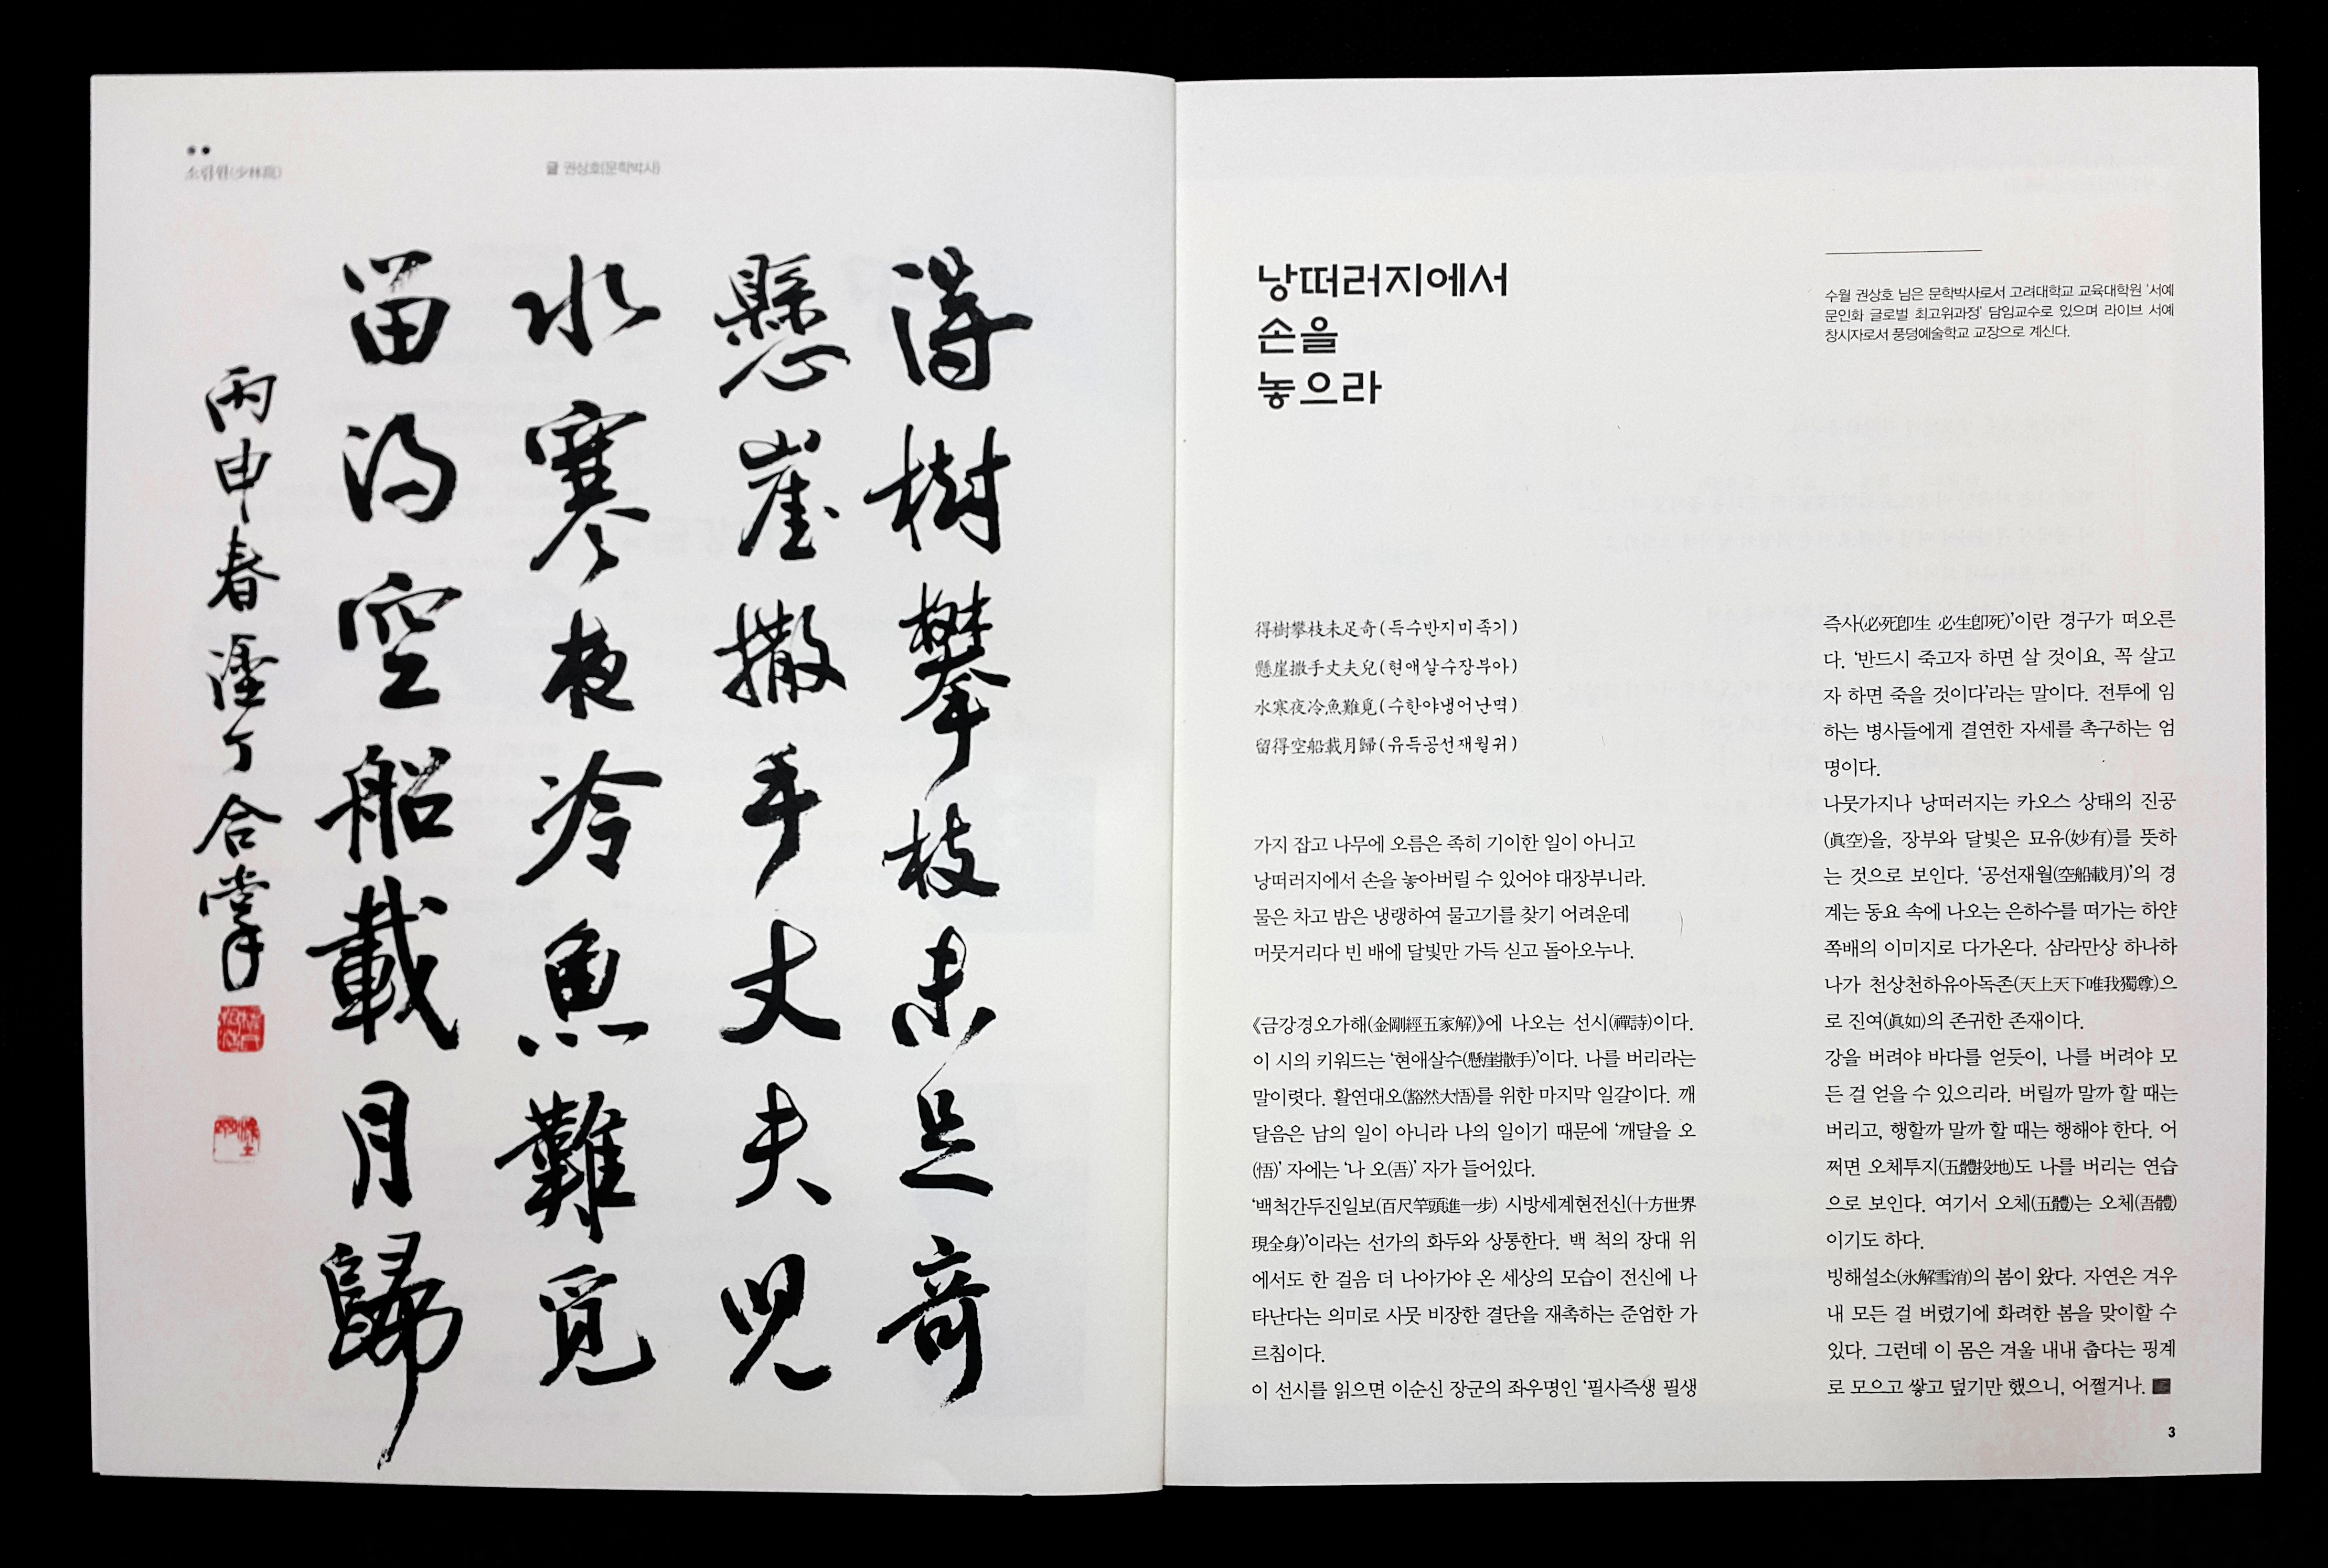 소림원(少林苑)
글 권상호(문학박사)
得樹攀枝未足奇
懸崖撒手丈夫兒
水寒夜冷魚難覓
留得空船載月歸
丙申春 塗丁 合掌
낭떠러지에서
손을
놓으라
수월 권상호 님은 문학박사로서 고려대학교 교육대학원 '서예
문인화 글로벌 최고위과정' 담임교수로 있으며 라이브 서예
창시자로서 풍덩예술학교 교장으로 계신다.
得樹攀枝未足奇(득수반지미족기)
懸崖撒手丈夫兒(현애살수장부아)
水寒夜冷魚難覓(수한야냉어난멱)
留得空船載月歸(유득공선재월귀)
가지 잡고 나무에 오름은 족히 기이한 일이 아니고
낭떠러지에서 손을 놓아버릴 수 있어야 대장부니라.
물은 차고 밤은 냉랭하여 물고기를 찾기 어려운데
머뭇거리다 빈 배에 달빛만 가득 싣고 돌아오누나.
《금강경오가해(金剛經五家解)》에 나오는 선시(禪詩)이다.
이 시의 키워드는 '현애살수(懸崖撒手)'이다. 나를 버리라는
말이렷다. 활연대오(豁然大悟)를 위한 마지막 일갈이다. 깨
달음은 남의 일이 아니라 나의 일이기 때문에 '깨달을 오
(悟)' 자에는 '나 오(吾)' 자가 들어있다.
'백척간두진일보(百尺竿頭進一步) 시방세계현전신(十方世界
現全身)'이라는 선가의 화두와 상통한다. 백 척의 장대 위
에서도 한 걸음 더 나아가야 온 세상의 모습이 전신에 나
타난다는 의미로 사뭇 비장한 결단을 재촉하는 준엄한 가
르침이다.
이 선시를 읽으면 이순신 장군의 좌우명인 '필사즉생 필생
즉사(必死卽生 必生卽死)'이란 경구가 떠오른
다. '반드시 죽고자 하면 살 것이요, 꼭 살고
자 하면 죽을 것이다'라는 말이다. 전투에 임
하는 병사들에게 결연한 자세를 촉구하는 엄
명이다.
나뭇가지나 낭떠러지는 카오스 상태의 진공
(眞空)을, 장부와 달빛은 묘유(妙有)를 뜻하
는 것으로 보인다. '공선재월(空船載月)'의 경
계는 동요 속에 나오는 은하수를 떠가는 하얀
쪽배의 이미지로 다가온다. 삼라만상 하나하
나가 천상천하유아독존(天上天下唯我獨尊)으
로 진여(眞如)의 존귀한 존재이다.
강을 버려야 바다를 얻듯이, 나를 버려야 모
든 걸 얻을 수 있으리라. 버릴까 말까 할 때는
버리고, 행할까 말까 할 때는 행해야 한다. 어
쩌면 오체투지(五體投地)도 나를 버리는 연습
으로 보인다. 여기서 오체(五體)는 오체(吾體)
이기도 하다.
빙해설소(氷解雪消)의 봄이 왔다. 자연은 겨우
내 모든 걸 버렸기에 화려한 봄을 맞이할 수
있다. 그런데 이 몸은 겨울 내내 춥다는 핑계
로 모으고 쌓고 덮기만 했으니, 어쩔거나.
3